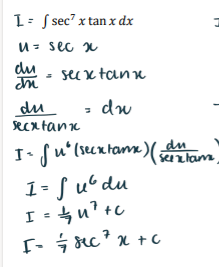 I = ∫ sec⁷ x tan x dx
u = sec x
du/dx = sec x tan x
du/(sec x tan x) = dx
I = ∫ u⁶ (sec x tan x) (du/(sec x tan x))
I = ∫ u⁶ du
I = 1/7 u⁷ + C
I = 1/7 sec⁷ x + C